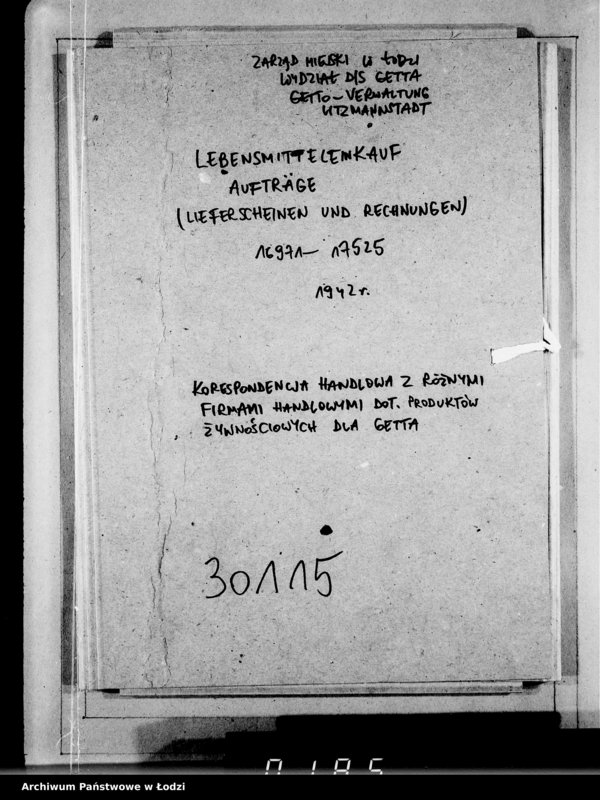 ZARZĄD MIEJSKI W ŁODZI
WYDZIAŁ D/S GETTA
GETTO-VERWALTUNG
LITZMANNSTADT
LEBENSMITTELEINKAUF
AUFTRÄGE
(LIEFERSCHEINEN UND RECHNUNGEN)
16971-17525
1942r.
KORESPONDENCJA HANDLOWA Z RÓŻNYMI
FIRMAMI HANDLOWYMI DOT. PRODUKTÓW
ŻYWNOŚCIOWYCH DLA GETTA
30115
0185
Archiwum Państwowe w Łodzi